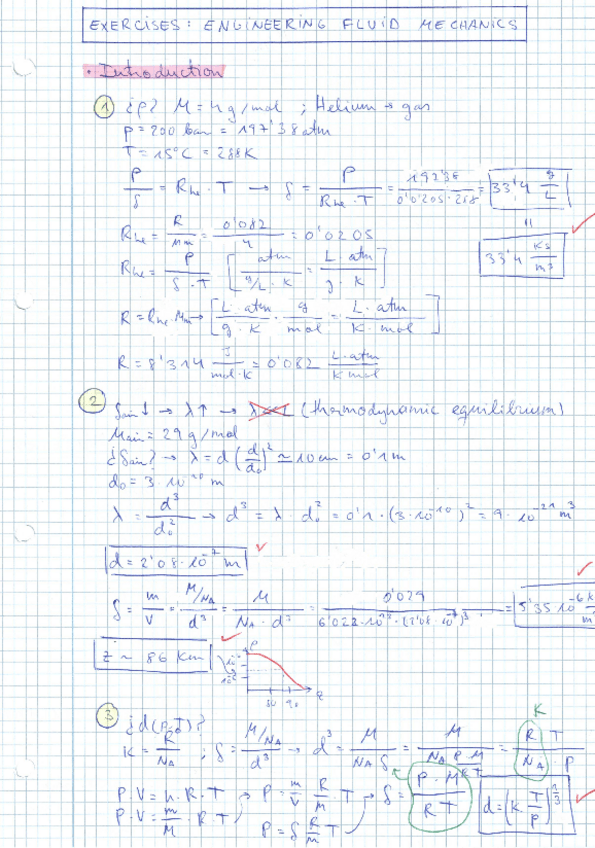 EXERCISES: ENGINEERING FLUID MECHANICS
• Introduction
① ¿ρ? M = 4 g/mol ; Helium → gas
P = 200 bar = 197'38 atm
T = 15°C = 288K
P/ρ = R_He · T → ρ = P/(R_He · T) = 197'38/(0'0205 · 288) = 33'4 g/L
R_He = R/Mm = 0'082/4 = 0'0205 = 33'4 kg/m³
R_He = P/(ρ · T) [atm/(g/L · K) = (L · atm)/(g · K)]
R = R_He · Mm → [(L · atm)/(g · K) · g/mol = (L · atm)/(K · mol)]
R = 8'314 J/(mol·K) = 0'082 (L·atm)/(K mol)
② ρair ↓ → λ↑ → λ L (thermodynamic equilibrium)
Mair = 29 g/mol
¿ρair? → λ = d (d/d₀)² ≃ 10 cm = 0'1 m
d₀ = 3 · 10⁻¹⁰ m
λ = d³/d₀² → d³ = λ · d₀² = 0'1 · (3 · 10⁻¹⁰)² = 9 · 10⁻²¹ m³
d = 2'08 · 10⁻⁷ m
ρ = m/V = (M/N_A)/d³ = M/(N_A · d³) = 0'029/(6'022 · 10²³ · (2'08 · 10⁻⁷)³) = 5'35 10⁻⁶
z ~ 86 Km
ρ
z
③ ¿d(p,T)?
K = R/N_A ; ρ = (M/N_A)/d³ → d³ = M/(N_A ρ) = M/(N_A (P M)/(R T)) = (R T)/(N_A · P)
K
P·V = n · R · T → P = m/V R/M · T → ρ = (P · M)/(R T)
P·V = m/M · R · T P = ρ R/M T
d = (K T/P)^